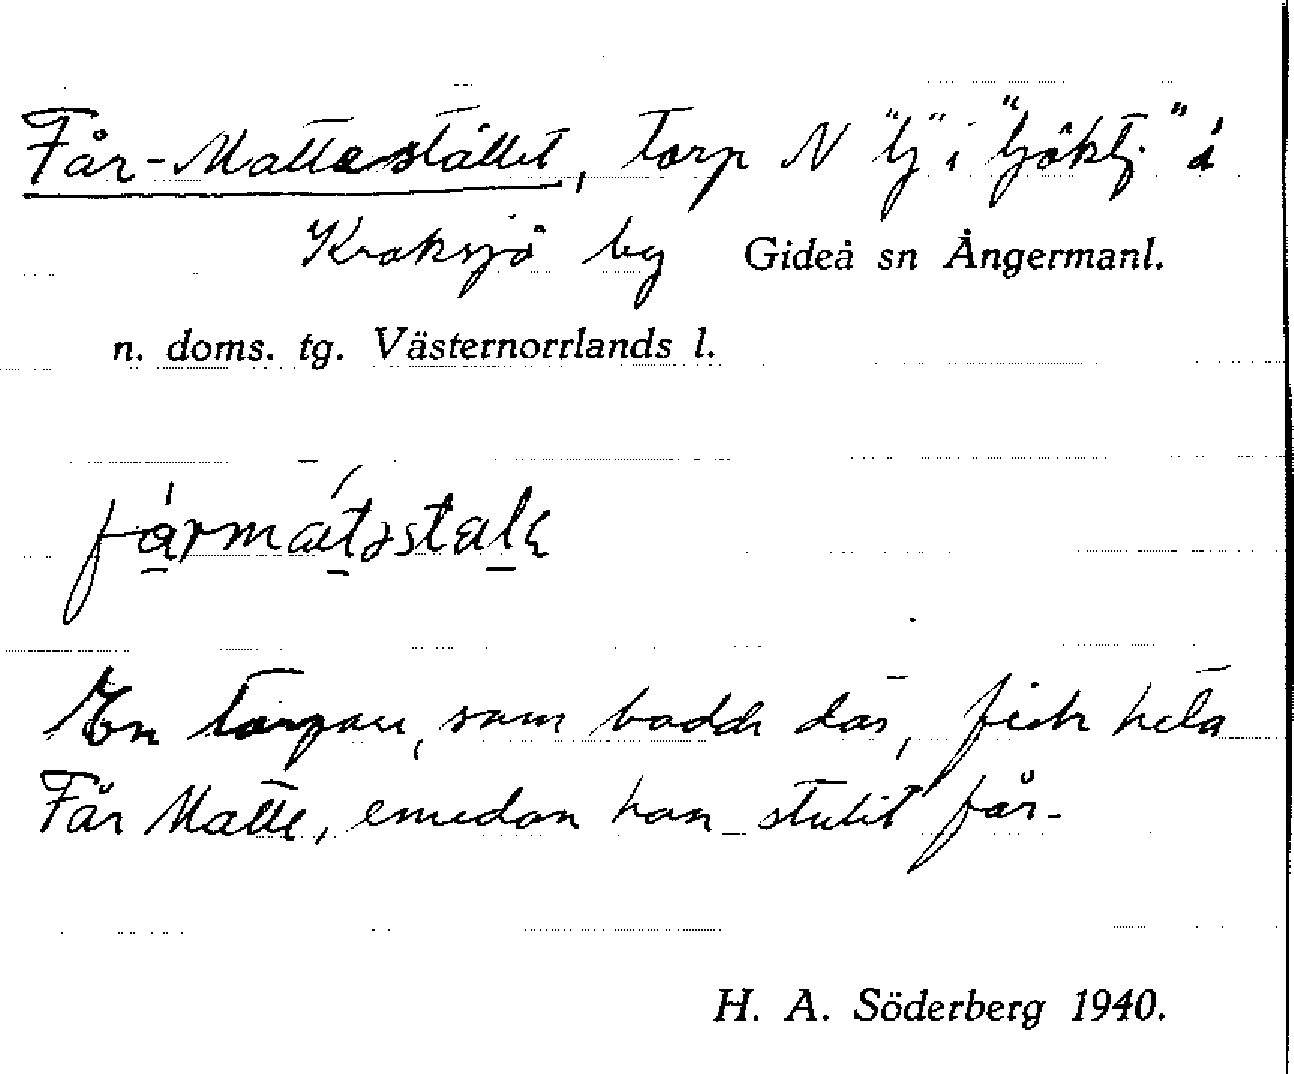 Får-Mattestället, torp N "tj" i "tjöktj" å
Kroksjö by Gideå sn Ångermanl.
n. doms. tg. Västernorrlands l.
En torpare, som bodde där, fick heta
Får Matte, emedan han stulit får.
H. A. Söderberg 1940.